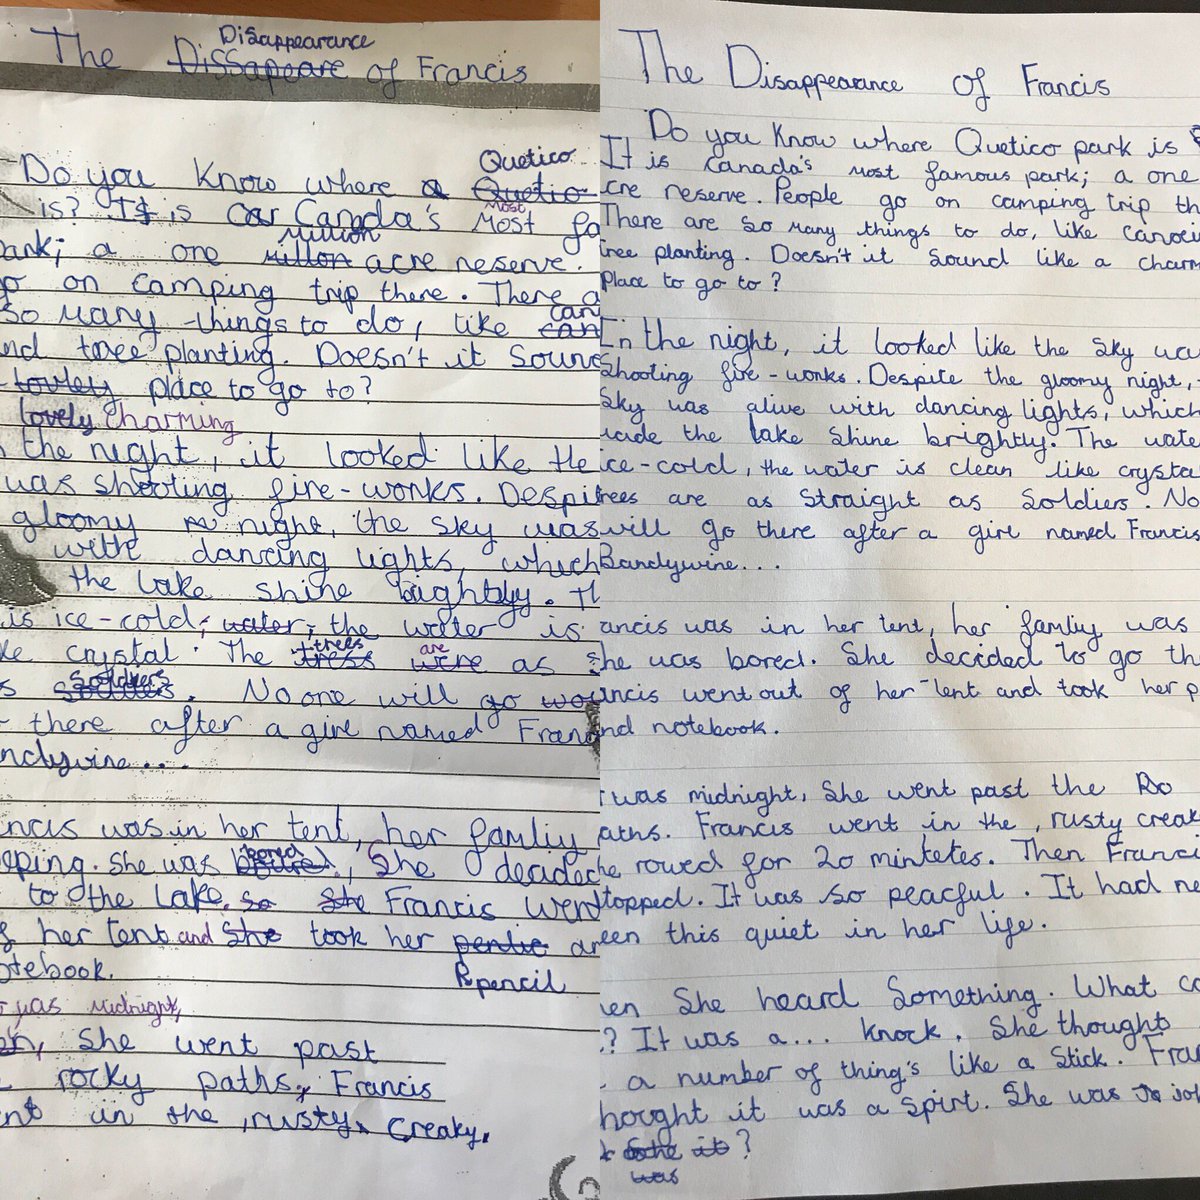 Disappearance
The Dissapeare of Francis
Quetico
Do you know where a Quetio
is? It is Car Canada's most
Most fa
park; a one million
Millon acre reserve.
go on camping trip there. There a
so many things to do, like can
can
and tree planting. Doesn't it soun
lovley place to go to?
lovely charming
the night, it looked like the
was shooting fire-works. Despi
gloomy night, the sky was
with dancing lights, which
the lake shine brightly. Th
is ice-cold; water; the water is
ke crystal. The trees are
tress were as s
soldiers
. No one will go wo
there after a girl named Fran
ndywine...
ncis was in her tent, her famliy
eping. She was bored, She decided
to the Lake. So She Francis went
f her tent and She took her penlic an
otebook.
pencil
was Midnight,
, She went past
rocky paths, Francis
nt in the, rusty, creaky,
The Disappearance of Francis
Do you know where Quetico park is
It is Canada's most famous park; a one
cre reserve. People go on camping trip th
There are so many things to do, like canoei
tree planting. Doesn't it sound like a charm
Place to go to?
In the night, it looked like the sky wa
Shooting fire-works. Despite the gloomy night,
Sky was alive with dancing lights, which
made the lake shine brightly. The wate
ice-cold, the water is clean like crysta
trees are as straight as Soldiers. No
will go there after a girl named Francis
Bandywine...
ancis was in her tent, her famliy was
She was bored. She decided to go th
ancis went out of her tent and took her p
nd notebook.
t was midnight, She went past the Ro
aths. Francis went in the, rusty creak
he rowed for 20 mintetes. Then Franci
topped. It was so peacful. It had ne
een this quiet in her life.
hen She heard Something. What co
? It was a... knock. She thought
a number of thing's like a Stick. Fran
hought it was a spirt. She was jol
She it?
was